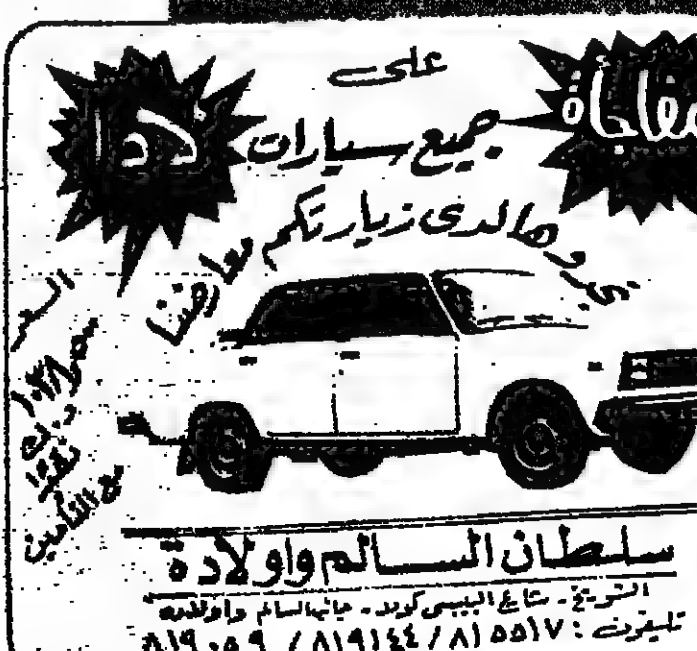 مفاجأة
على
جميع سيارات لادا
تجدوها لدى زيارتكم معارضنا
السعر
د.ك
نقدا
مع التأمين
سلطان السالم واولاده
الشويخ - شارع البيبسي كولا - جانب السالم واولاده
تليفون : ٨١٥٥١٧ / ٨١٩١٤٤ / ٨١٩٠٥٩